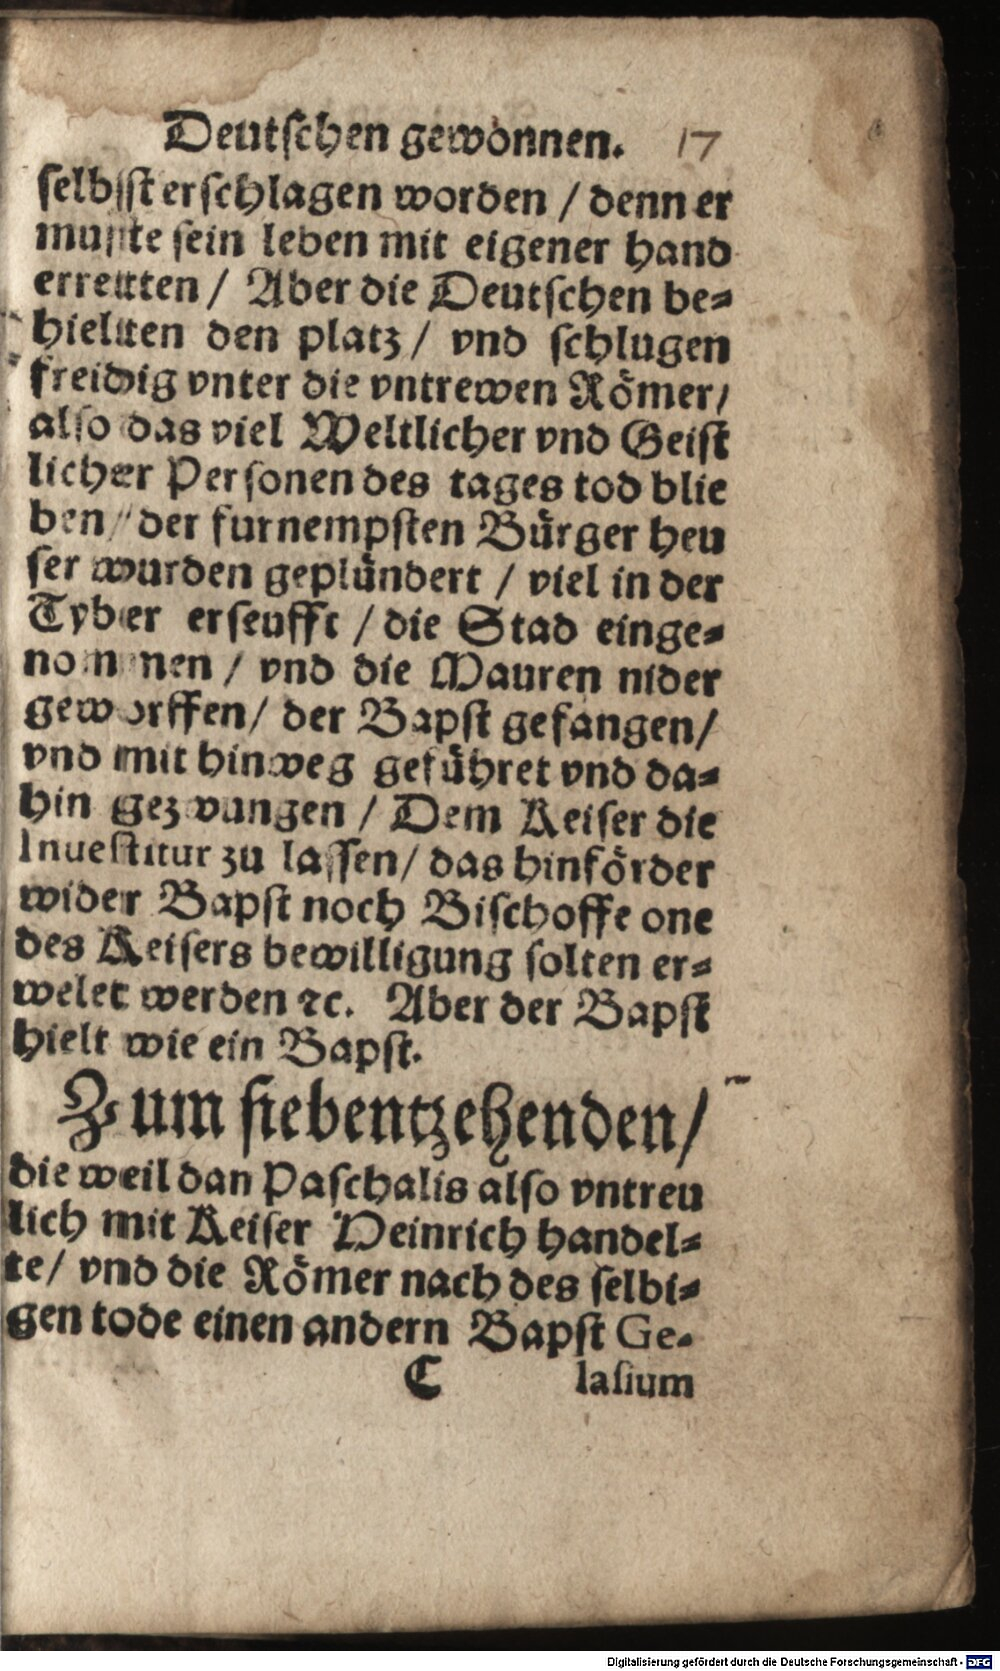 Deutschen gewonnen. 17
selbst erschlagen worden / denn er
muste sein leben mit eigener hand
erretten / Aber die Deutschen be-
hielten den platz / vnd schlugen
freidig vnter die vntrewen Römer /
also das viel Weltlicher vnd Geist
licher Personen des tages tod blie
ben / der furnempsten Bürger heu
ser wurden geplündert / viel in der
Tyber erseufft / die Stad einge-
nommen / vnd die Mauren nider
geworffen / der Bapst gefangen /
vnd mit hinweg geführet vnd da-
hin gezwungen / Dem Keiser die
Inuestitur zu lassen / das hinförder
wider Bapst noch Bischoffe one
des Keisers bewilligung solten er-
welet werden ꝛc. Aber der Bapst
hielt wie ein Bapst.
Zum siebentzehenden /
die weil dan Paschalis also vntreu
lich mit Keiser Heinrich handel-
te / vnd die Römer nach des selbi-
gen tode einen andern Bapst Ge-
C lasium
Digitalisierung gefördert durch die Deutsche Forschungsgemeinschaft - DFG